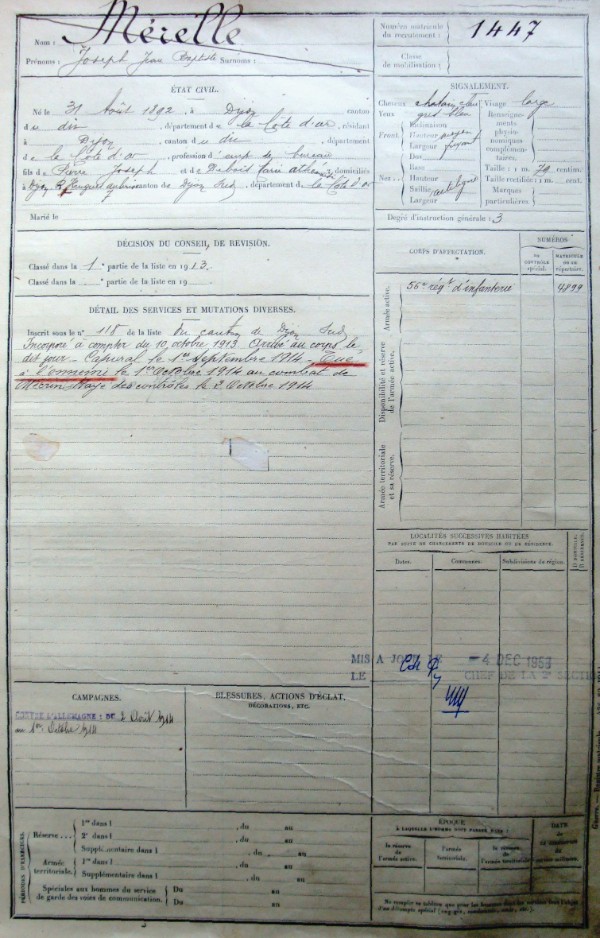 Nom : Mérelle
Prénoms : Joseph Jean Baptiste Surnoms :
Numéro matricule du recrutement : 1447
Classe de mobilisation :
ÉTAT CIVIL.
Né le 31 Août 1892, à Dijon canton
du dit, département de la Côte d'or, résidant
à Dijon, canton du dit, département
de la Côte d'or, profession d' empl. de bureau
fils de Pierre Joseph et de Dubois, domiciliés
à Dijon, canton de Dijon Sud, département de la Côte d'Or
Marié le
SIGNALEMENT.
Cheveux châtain
Yeux gris bleu
Front
Inclinaison
Hauteur moyen
Largeur
Nez
Dos
Base
Hauteur
Saillie
Largeur
Visage large
Renseignements physionomiques complémentaires.
Taille : 1 m. 70 centim.
Taille rectifiée : 1 m. cent.
Marques particulières.
Degré d'instruction générale : 3
DÉCISION DU CONSEIL DE RÉVISION.
Classé dans la 1e partie de la liste en 1913.
Classé dans la partie de la liste en 19
DÉTAIL DES SERVICES ET MUTATIONS DIVERSES.
Inscrit sous le n° 118 de la liste du canton de Dijon Sud
Incorporé à compter du 10 octobre 1913 Arrivé au corps le
dit jour - Caporal le 1er Septembre 1914 - Tué
à l'ennemi le 1er Octobre 1914 au combat de
Rayé des contrôles le 2 Octobre 1914
CORPS D'AFFECTATION.
NUMÉROS
AU CONTRÔLE spécial.
MATRICULE OU AU répertoire.
Armée active.
56e régt d'infanterie
4899
Disponibilité et réserve de l'armée active.
Armée territoriale et sa réserve.
LOCALITÉS SUCCESSIVES HABITÉES
PAR SUITE DE CHANGEMENTS DE DOMICILE OU DE RÉSIDENCE.
Dates.
Communes.
Subdivisions de région.
D. DOMICILE. R. RÉSIDENCE.
MIS A JOUR LE -4 DEC 1953
LE CHEF DE LA 2e SECTI
CAMPAGNES.
CONTRE L'ALLEMAGNE : DU 2 Août 1914
au 1er Octobre 1914
BLESSURES, ACTIONS D'ÉCLAT,
DÉCORATIONS, ETC.
PÉRIODES D'EXERCICES.
Réserve ...
1re dans l , du au
2e dans l , du au
Supplémentaire dans l , du au
Armée territoriale.
1re dans l , du au
Supplémentaire dans l , du au
Spéciales aux hommes du service de garde des voies de communication.
Du au
Du au
ÉPOQUE
À LAQUELLE L'HOMME DOIT PASSER DANS :
la réserve de l'armée active.
l'armée territoriale.
la réserve de l'armée territoriale.
DATE
DE LA LIBÉRATION du service militaire.